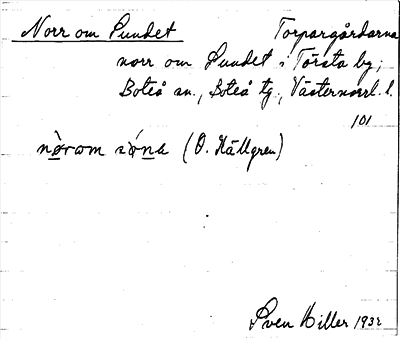 Norr om Sundet Torpargårdarna
norr om Sundet i Törsta by,
Boteå sn., Boteå tg., Västernorrl. l.
101
nòrom sóna (O. Hällgren)
Sven Hiller 1932